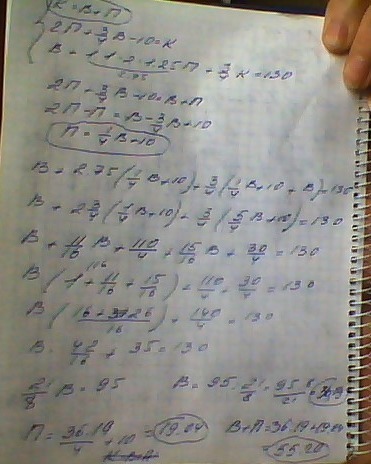 К = В + П
2П + 3/4 В - 10 = К
В + 1·1·2·1.25П + 3/4 К = 130
2.75
2П + 3/4 В - 10 = В + П
2П - П = В - 3/4 В + 10
П = 1/4 В + 10
В + 2.75 (1/4 В + 10) + 3/4 (1/4 В + 10 + В) = 130
В + 2 3/4 (1/4 В + 10) + 3/4 (5/4 В + 10) = 130
В + 11/16 В + 110/4 + 15/16 В + 30/4 = 130
В (1 + 11/16 + 15/16) + 110/4 + 30/4 = 130
В (16 + 26 / 16) + 140/4 = 130
В · 42/16 + 35 = 130
21/8 В = 95 В = 95 : 21/8 = 95·8/21 = 36.19
П = 36.19/4 + 10 = 19.04 В + П = 36.19 + 19.04
= 55.20